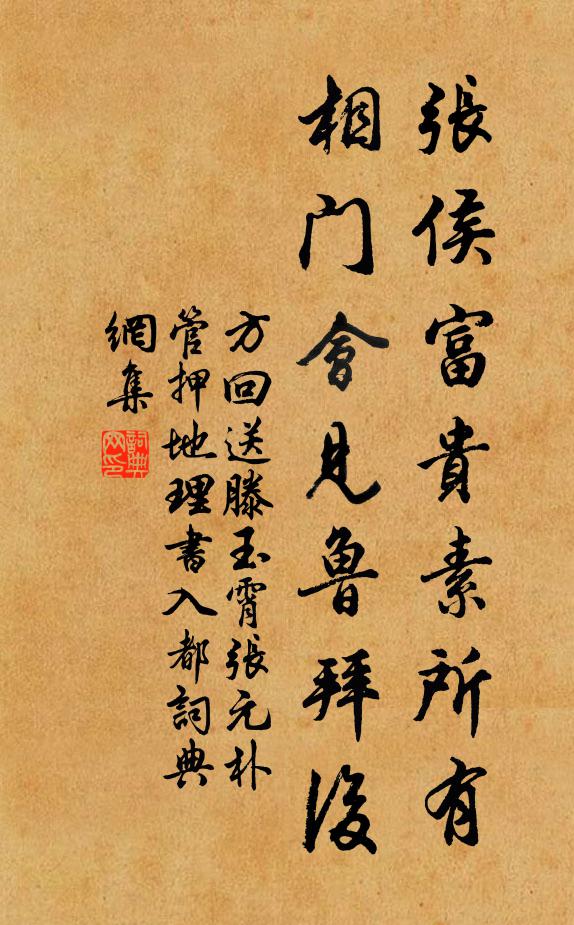 張侯富貴素所有
相門會見魯拜後
方回送滕玉霄張元朴
管押地理書入都詞典
網集
詞典網印